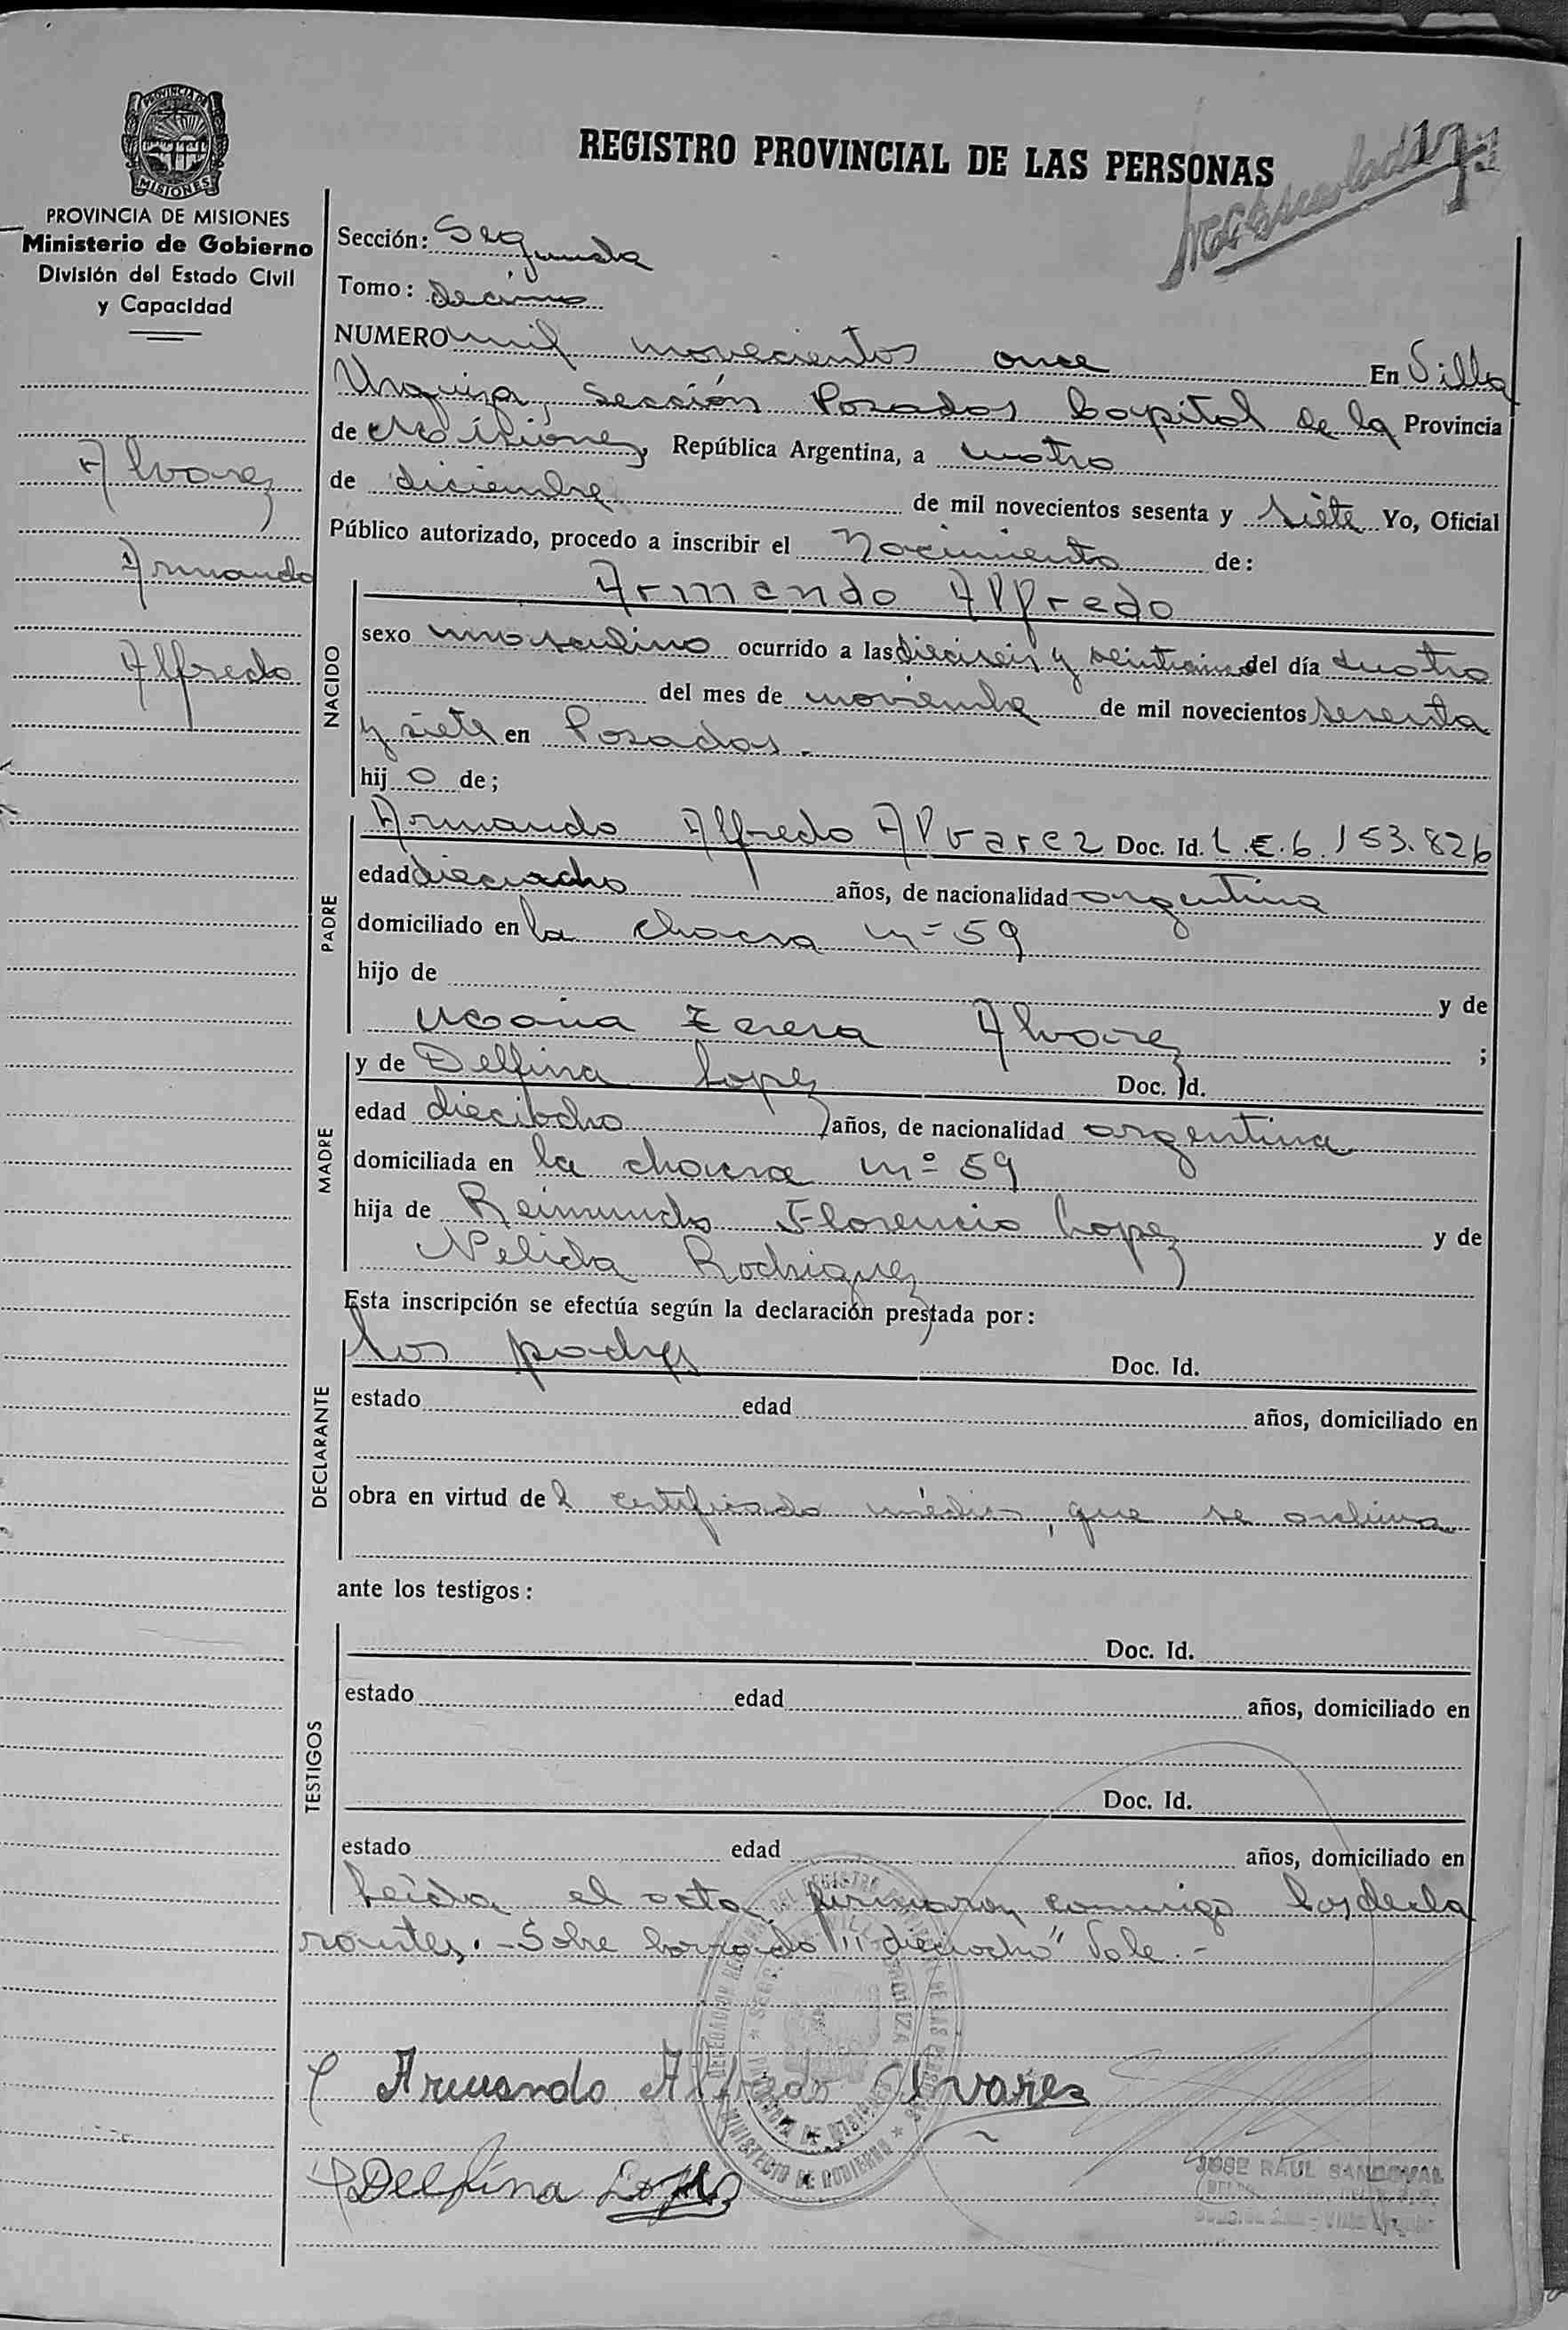 PROVINCIA DE
MISIONES
PROVINCIA DE MISIONES
Ministerio de Gobierno
División del Estado Civil
y Capacidad
Alvarez
Armando
Alfredo
REGISTRO PROVINCIAL DE LAS PERSONAS
Sección: Segunda
Tomo: Décimo
NUMERO mil novecientos once En Villa
Urquiza, Sección Posadas Capital de la Provincia
de Misiones, República Argentina, a cuatro
de diciembre de mil novecientos sesenta y siete Yo, Oficial
Público autorizado, procedo a inscribir el Nacimiento de:
NACIDO
Armando Alfredo
sexo masculino ocurrido a las dieciseis y del día cuatro
del mes de noviembre de mil novecientos sesenta
y siete en Posadas.
hij o de;
PADRE
Armando Alfredo Alvarez Doc. Id. L.E.6.153.826
edad dieciocho años, de nacionalidad argentina
domiciliado en la chacra nº 59
hijo de y de
María Teresa Alvarez ;
MADRE
y de Delfina Lopez Doc. Id.
edad dieciocho años, de nacionalidad argentina
domiciliada en la chacra nº 59
hija de Reimundo Florencio Lopez y de
Nelida Rodriguez
Esta inscripción se efectúa según la declaración prestada por:
DECLARANTE
los padres Doc. Id.
estado edad años, domiciliado en
obra en virtud de l certificado médico, que se archiva
ante los testigos:
TESTIGOS
Doc. Id.
estado edad años, domiciliado en
Doc. Id.
estado edad años, domiciliado en
Leída el acta, firmaron conmigo los decla
rantes.- Sobre borrado "dieciocho" Vale.-
Armando Alfredo Alvarez
Delfina Lopez
MINISTERIO DE GOBIERNO
PROVINCIA DE MISIONES
JOSE RAUL SANDOVAL